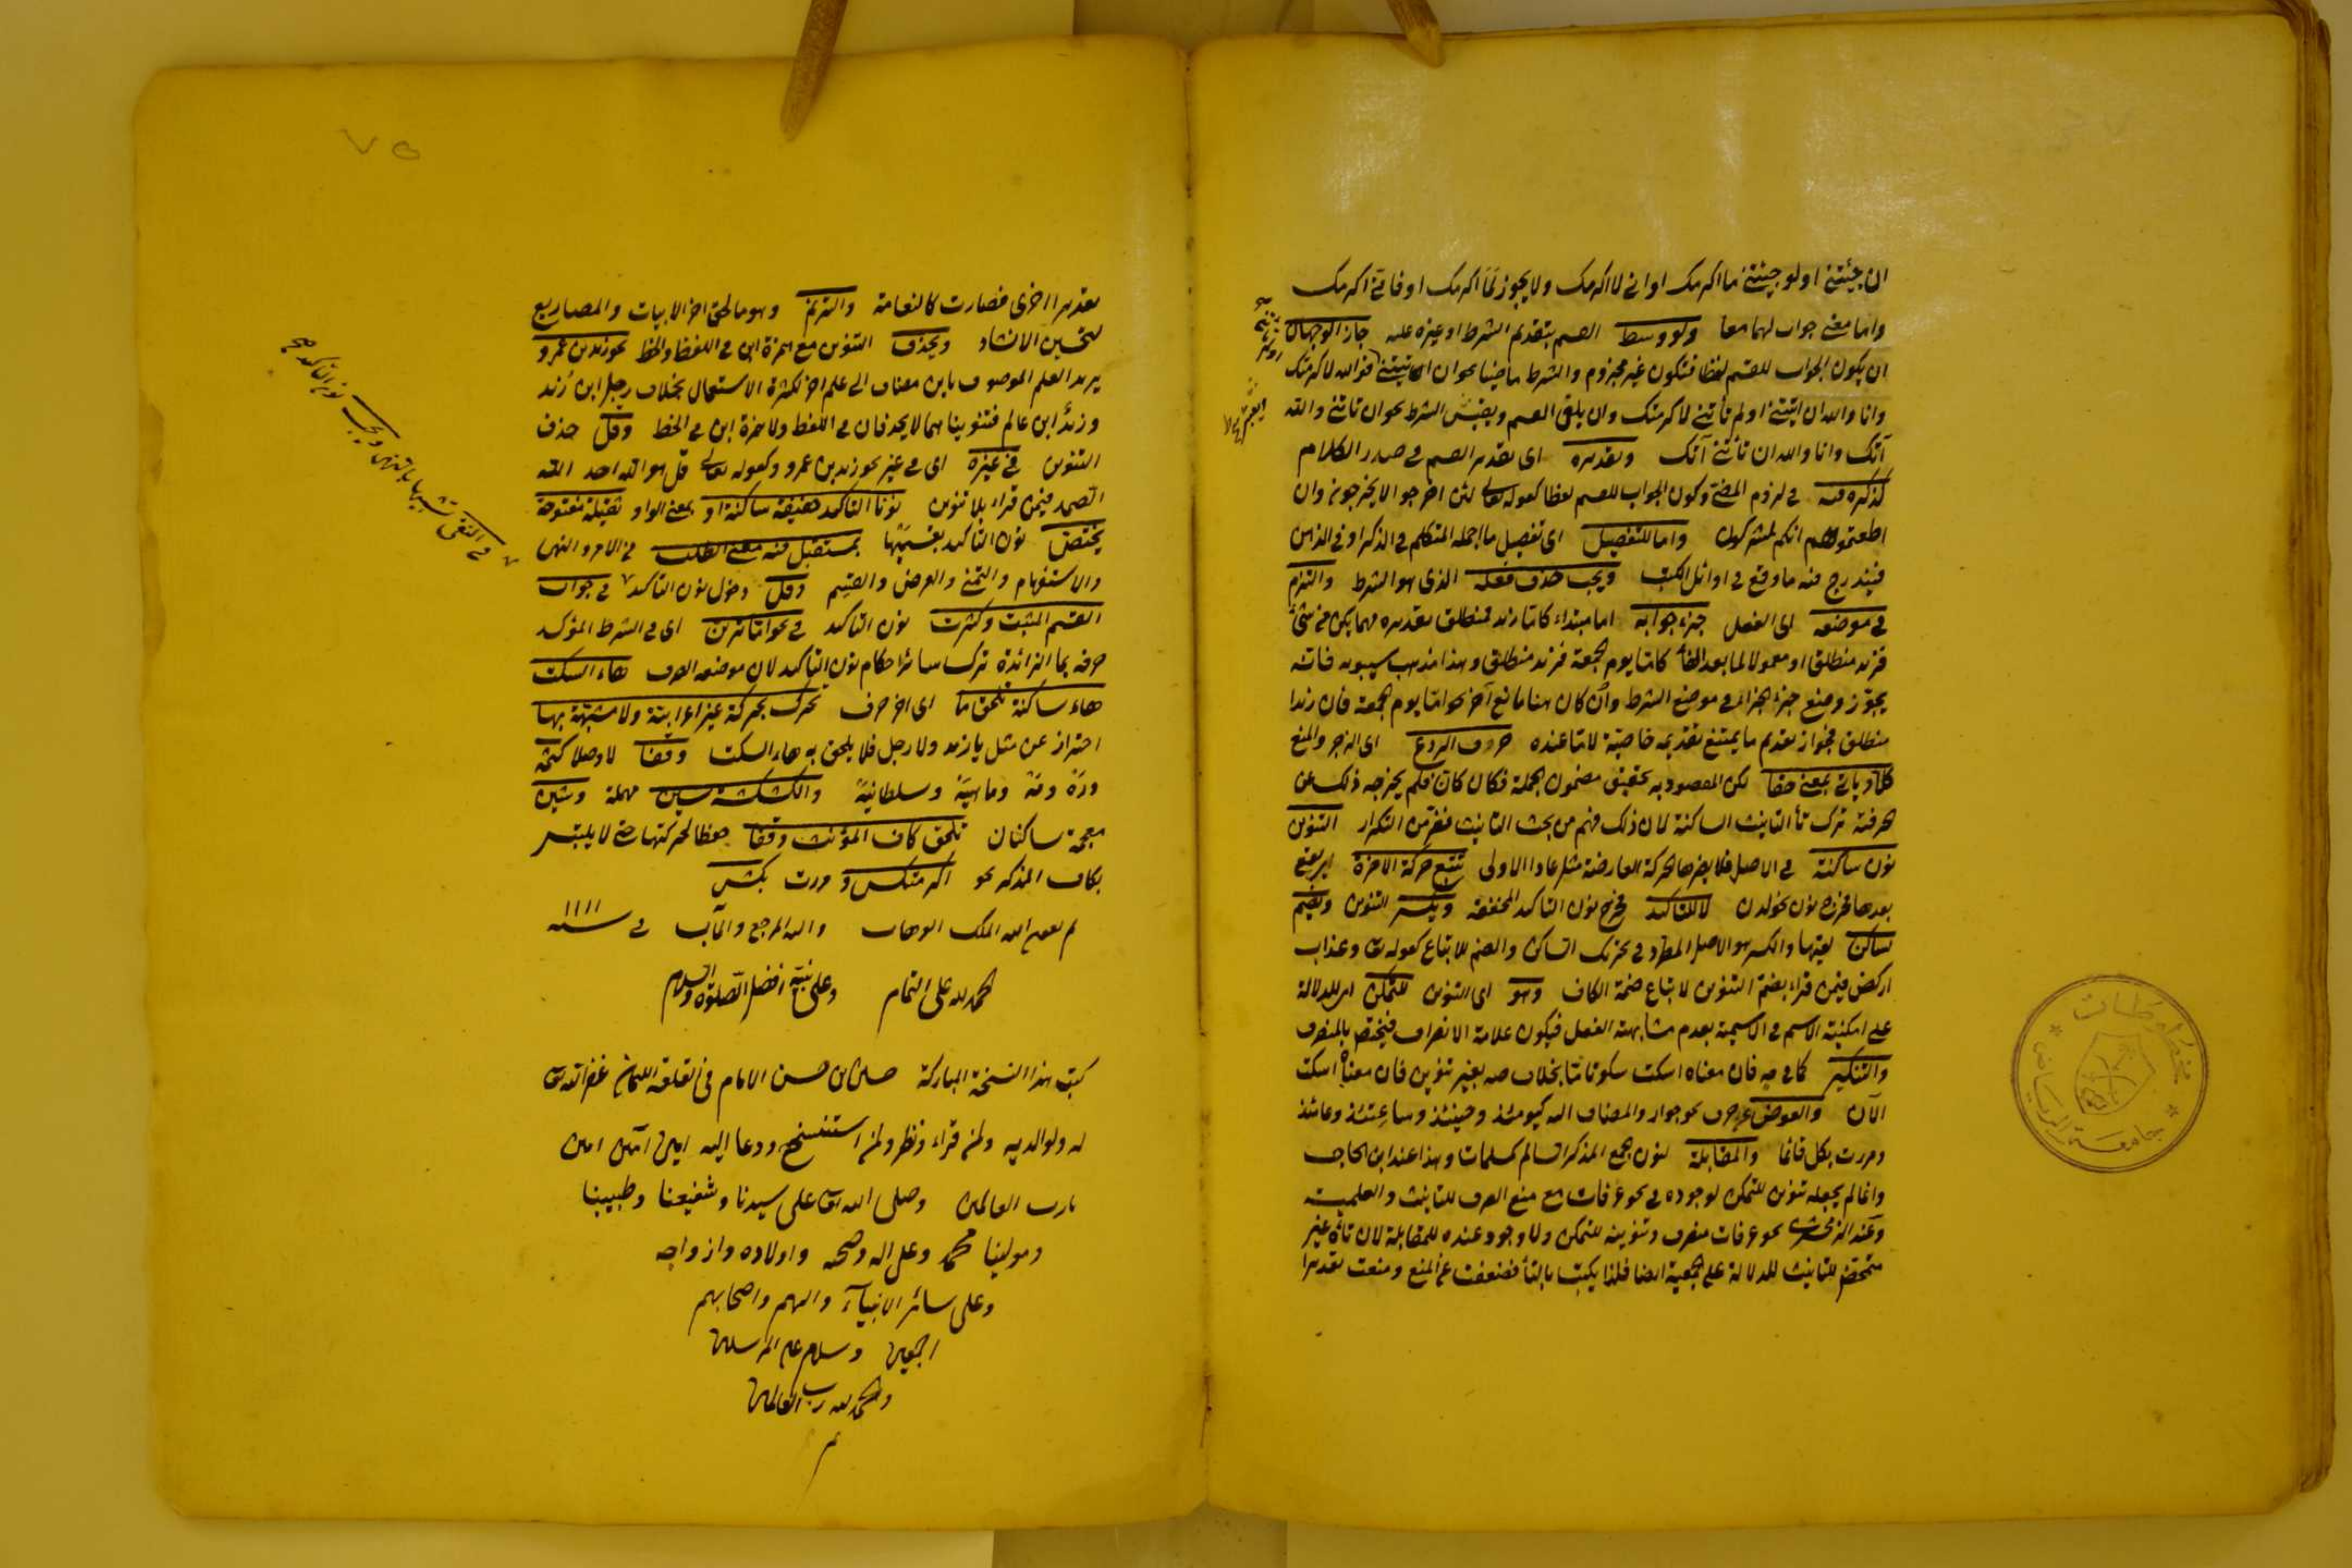 ان جئتنى او لو جئتنى ما اكرمك او انى لاكرمك ولا يجوز لما اكرمك او فانى اكرمك
واما معنى جواب لهما معا ولو وسط القسم بتقديم الشرط او غيره عليه جاز الوجهان
ان يكون الجواب للقسم لفظا فتكون غير مجزوم والشرط ماضيا نحو ان اتيتنى فوالله لاكرمتك
وانا والله ان اتيتنى او لم تأتنى لاكرمتك وان يلغى القسم ويعتبر الشرط نحو ان تاتنى والله
آتك وانا والله ان تأتنى آتك وتقديره اى تقدير القسم فى صدر الكلام
كذكره فيه فى لزوم المضى وكون الجواب للقسم لفظا كقوله تعالى لئن اخرجوا لا يخرجون وان
اطعتموهم انكم لمشركون واما للتفصيل اى تفصيل ما اجمله المتكلم فى الذكر او فى الذهن
فيندرج فيه ما وقع فى اوائل الكتب ويجب حذف فعله الذى هو الشرط والتزم
فى موضعه اى الفعل جزء جوابه اما مبتداء كاما زيد فمنطلق تقديره مهما يكن من شئ
فزيد منطلق او معمولا لما بعد الفاء كاما يوم الجمعة فزيد منطلق وهذا مذهب سيبويه فانه
يجوز وضع جزء الجزاء فى موضع الشرط وان كان هنا مانع آخر نحو اما يوم الجمعة فان زيدا
منطلق فجواز تقديم ما يمتنع تقديمه خاصية لاما عنده حروف الردع اى الزجر والمنع
كلا وياتى بمعنى حقا لكن المقصود به تحقيق مضمون الجملة فكان كان فلم يخرجه ذلك عن
حرفية ترك تأ التانيث الساكنة لان ذلك فهم من بحث التانيث فتفر من التكرار التنوين
نون ساكنة فى الاصل فلا يضرها الحركة العارضة مثل عادا الاولى تتبع حركة الاخرة اى يقع
بعدها فخرج نون نحو لدن لا للتاكيد فخرج نون التاكيد المخففة ويكسر التنوين ويضم
لساكن بعدها والكسر هو الاصل المطرد فى تحريك الساكن والضم للاتباع كقوله تع وعذاب
اركض فيمن قراء بضم التنوين لاتباع ضمة الكاف وهو اى التنوين للتمكن اى للدلالة
على امكنية الاسم فى الاسمية بعدم مشابهة الفعل فيكون علامة الانصراف فيختص بالمنصرف
والتنكير كما فى صه فان معناه اسكت سكوتا ما بخلاف صه بغير تنوين فان معناه اسكت
الآن والعوض عن حرف نحو جوار والمضاف اليه كيومئذ وحينئذ وساعتئذ وعامئذ
ومررت بكل قائما والمقابلة لنون جمع المذكر السالم كمسلمات وهذا عند ابن الحاجب
وانما لم يجعله تنوين للتمكن لوجوده فى نحو عرفات مع منع الصرف للتانيث والعلمية
وعند الزمخشرى نحو عرفات منصرف وتنوينه للتمكن ولا وجود عنده للمقابلة لان تائه غير
متمحض للتانيث للدلالة على الجمعية ايضا فلذا يكتب بالتأ فضعفت عن المنع ومنعت تقديرا
مخطوطات
جامعة الرياض
٧٥
تقدير اخرى فصارت كالنعامة والترنم وهو ما لحق اخر الابيات والمصاريع
لتحسين الانشاد ويحذف التنوين مع همزة ابن فى اللفظ والخط نحو زيد بن عمرو
يريد العلم الموصوف بابن مضاف الى علم اخر لكثرة الاستعمال بخلاف رجل ابن زيد
وزيد ابن عالم فتنويناهما لا يحذفان فى اللفظ ولا همزة ابن فى الخط وقل حذف
التنوين فى غيره اى فى غير نحو زيد بن عمرو وكقوله تعالى قل هو الله احد الله
الصمد فيمن قراء بلا تنوين نونا التاكيد خفيفة ساكنة او بمعنى الواو ثقيلة مفتوحة
يختص نون التاكيد بقسميها بمستقبل فيه معنى الطلب فى الامر والنهى
والاستفهام والتمنى والعرض والقسم وقل دخول نون التاكيد فى جواب
القسم المثبت وكثرت نون التاكيد فى نحو اما ترين اى فى الشرط المؤكد
حرفه بما الزائدة ترك سائر احكام نون التأكيد لان موضعه الصرف هاء السكت
هاء ساكنة تلحق ما اى اخر حرف تحرك بحركة غير اعرابية ولا مشبهة بها
احتراز عن مثل يا زيد ولا رجل فلا يلحق به هاء السكت وقفا لا وصلا كثمه
وره وقه وماهيه وسلطانيه والكشكشة سين مهملة وشين
معجمة ساكنان تلحق كاف المؤنث وقفا حفظا لحركتها حتى لا يلتبس
بكاف المذكر نحو اكرمتكس و مررت بكش
تم بعون الله الملك الوهاب واليه المرجع والمآب فى سنة ١١١١
الحمد لله على التمام وعلى نبيه افضل الصلوة والسلام
كتب هذا النسخة المباركة حسن بن حسن الامام فى القلعة غفر الله تع
له ولوالديه ولمن قراء ونظر ولمن استنسخ ودعا اليه امين امين امين
يا رب العالمين وصلى الله تع على سيدنا وشفيعنا وطبيبنا
ومولينا محمد وعلى اله وصحبه واولاده وازواجه
وعلى سائر الانبياء والهم واصحابهم
اجمعين وسلام على المرسلين
والحمد لله رب العالمين
م
فى النفى تشبيها بالنهى ويجب نون التاكيد صح